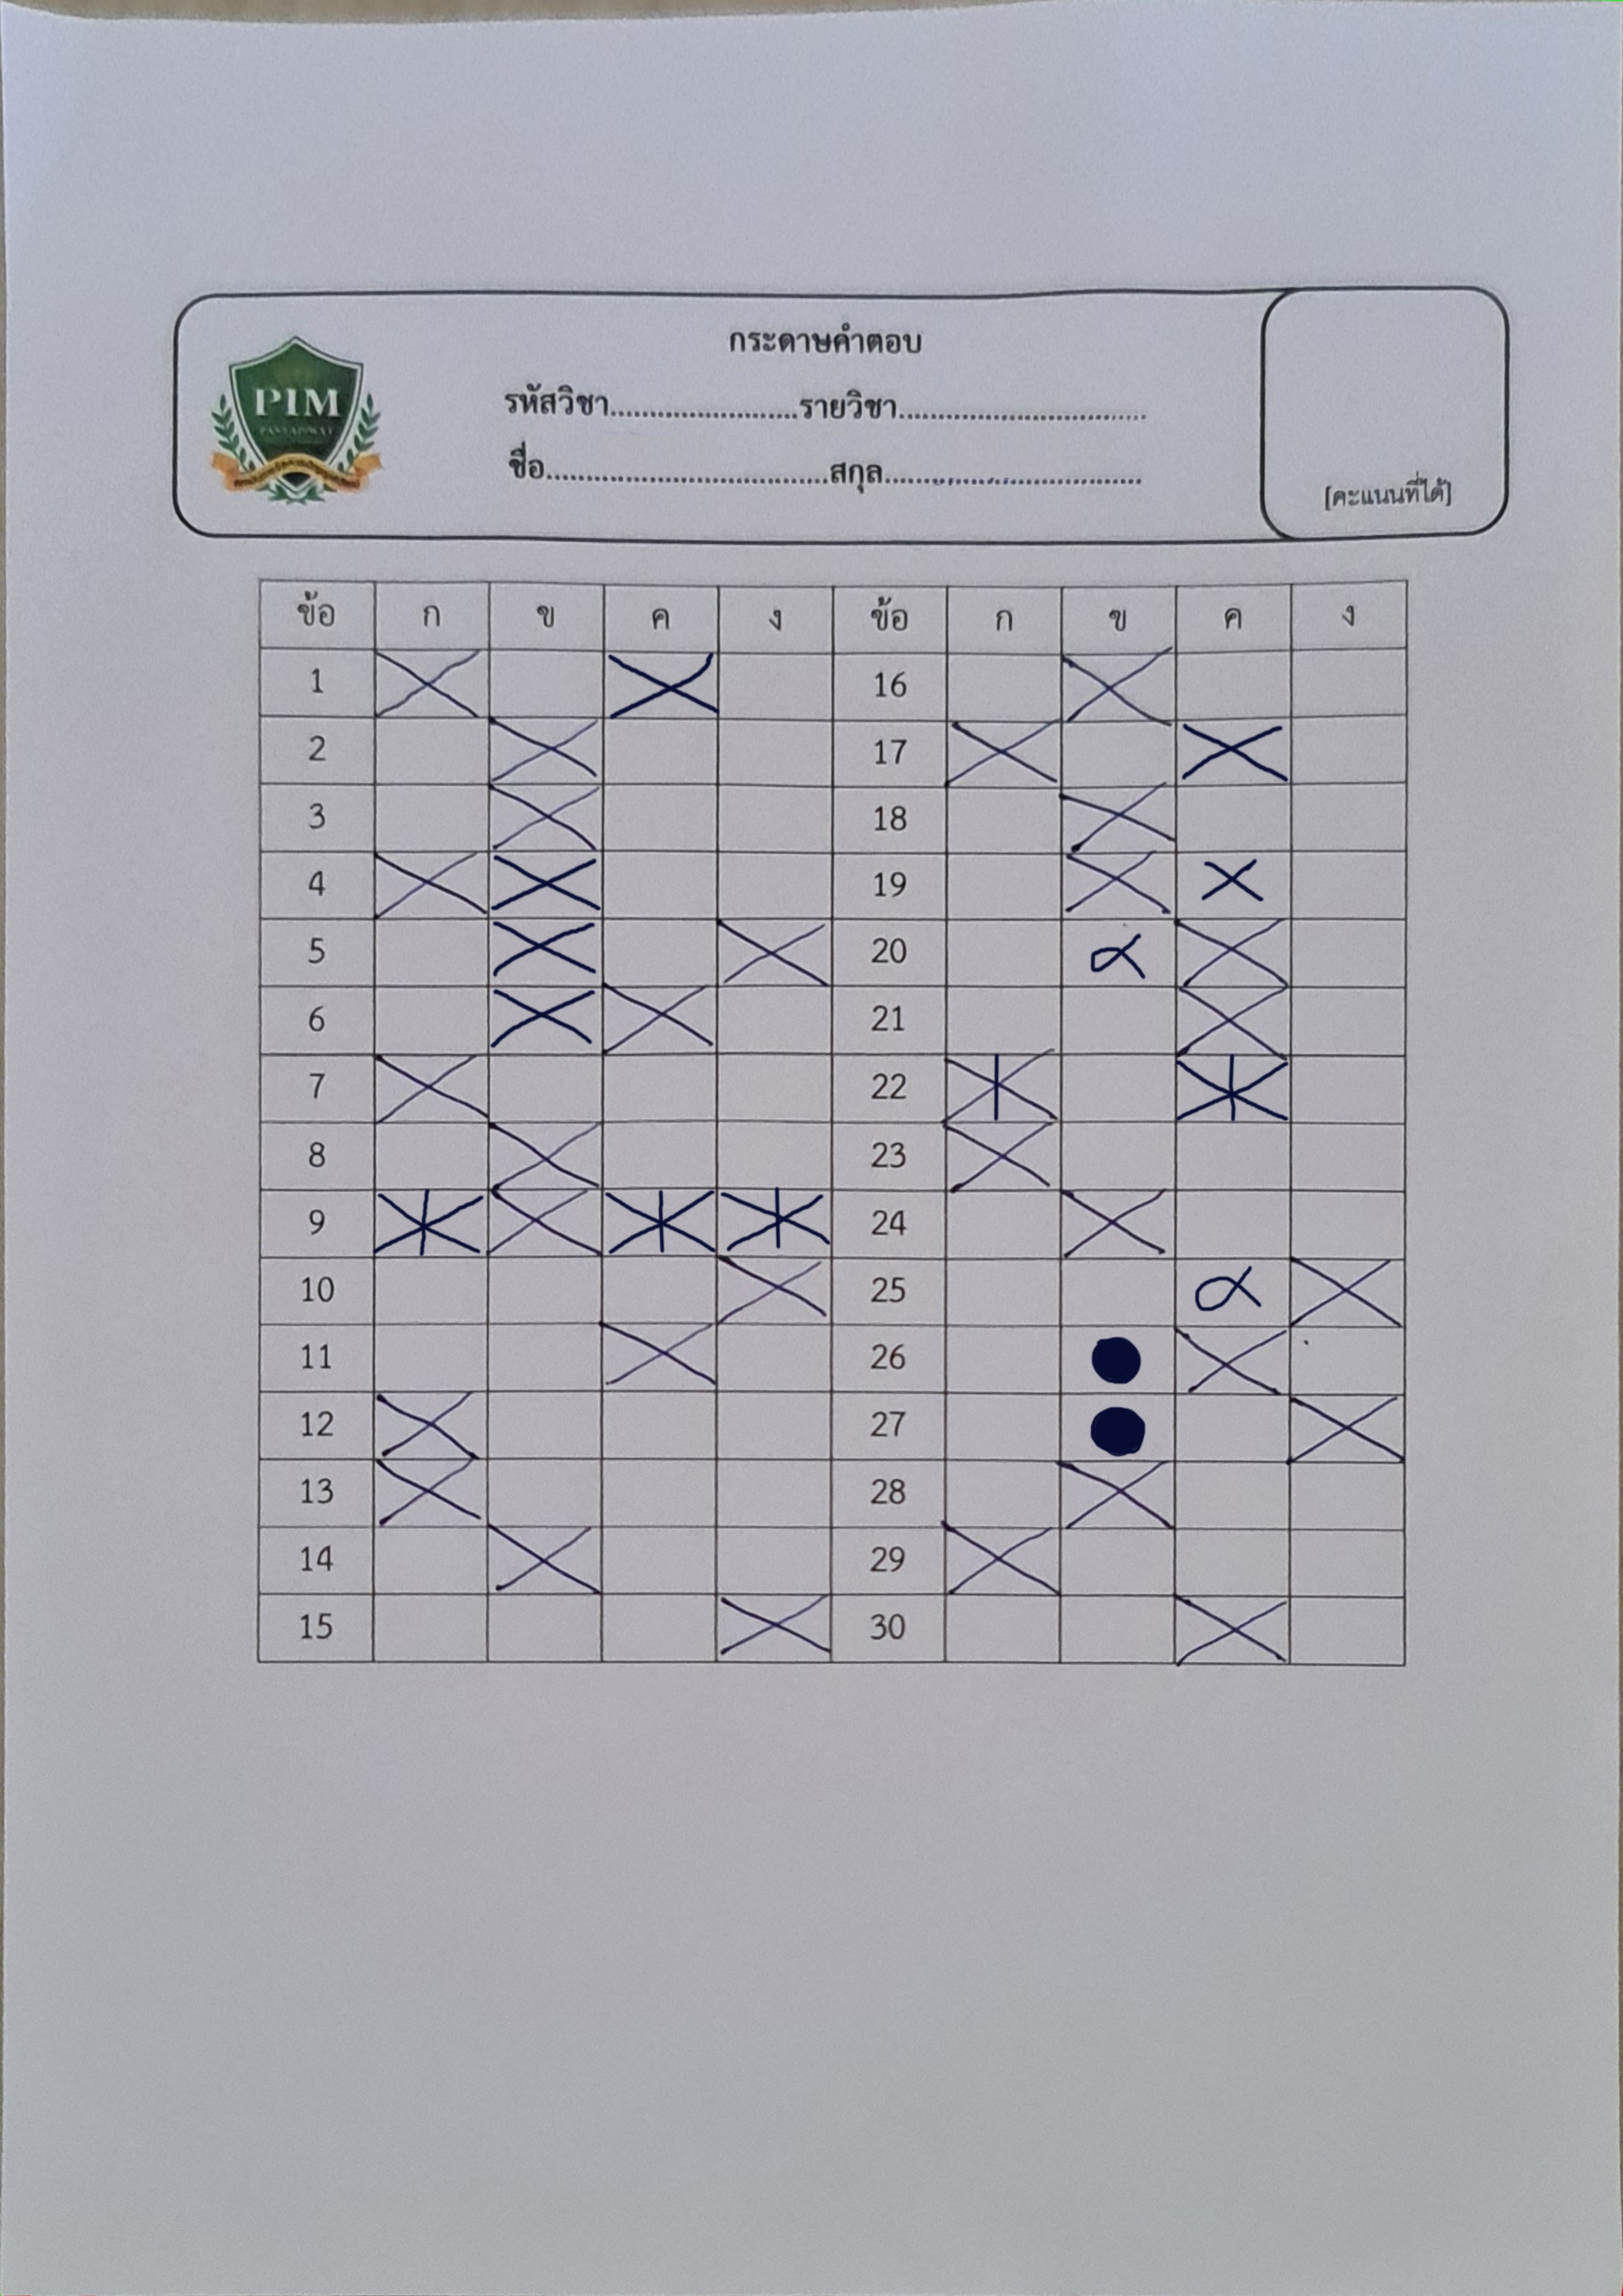 กระดาษคำตอบ
รหัสวิชา........................รายวิชา................................
ชื่อ....................................สกุล.................................
[คะแนนที่ได้]
PIM
ข้อ ก ข ค ง ข้อ ก ข ค ง
1 X X 16 X
2 X 17 X X
3 X 18 X
4 X X 19 X X
5 X X 20 α X
6 X X 21 X
7 X 22 X X
8 X 23 X
9 X X X X 24 X
10 X 25 α X
11 X 26 ● X
12 X 27 ● X
13 X 28 X
14 X 29 X
15 X 30 X